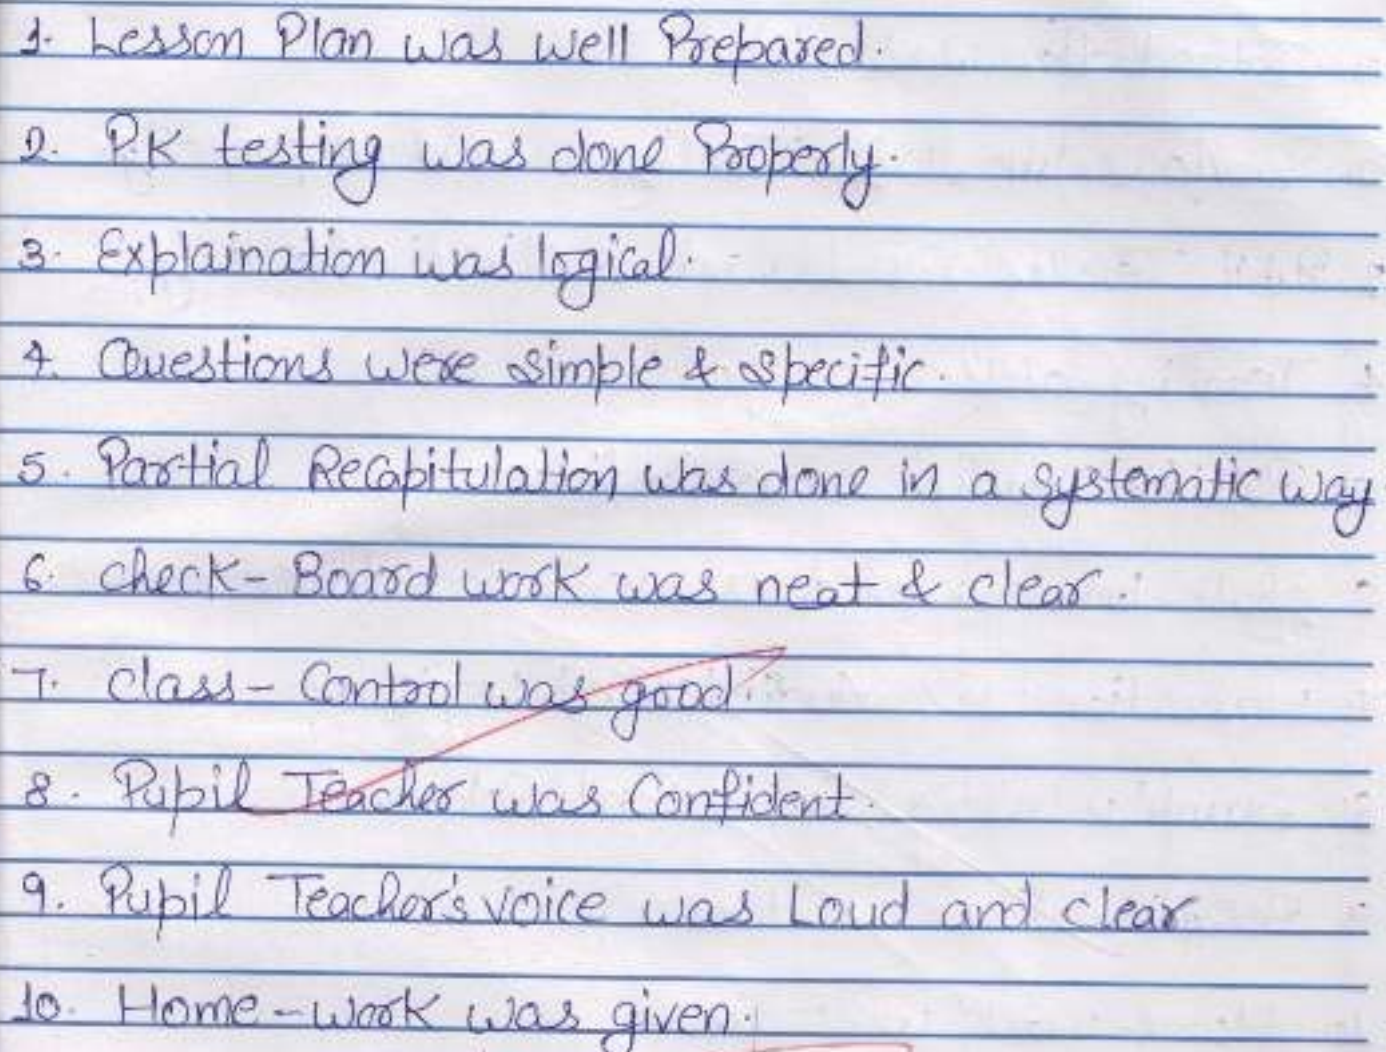 1. Lesson Plan was well Prepared.
2. P.K testing was done Properly.
3. Explaination was logical.
4. Questions were simple & specific.
5. Partial Recapitulation was done in a systematic way
6. check-Board work was neat & clear.
7. class-Control was good.
8. Pupil Teacher was Confident.
9. Pupil Teacher's voice was Loud and clear
10. Home-work was given.